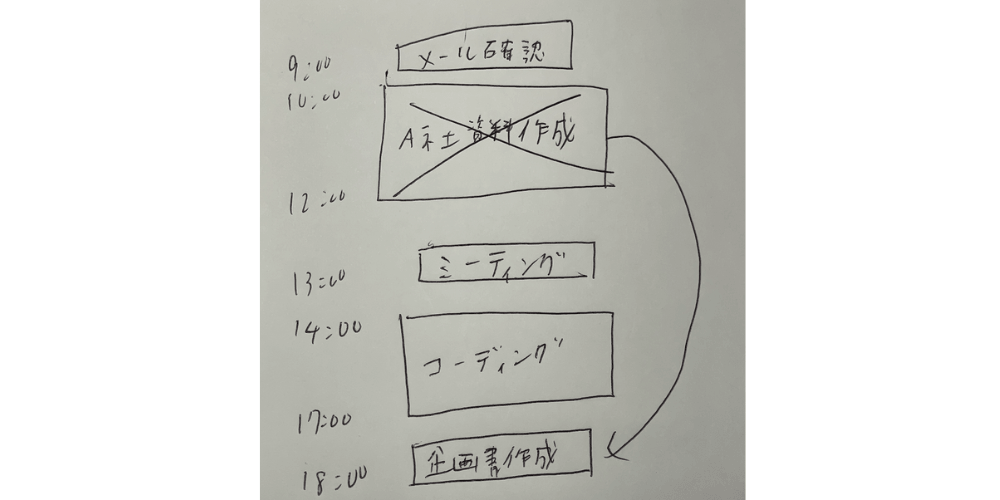 9:00
メール確認
10:00
A社 資料作成
12:00
13:00
ミーティング
14:00
コーディング
17:00
企画書作成
18:00